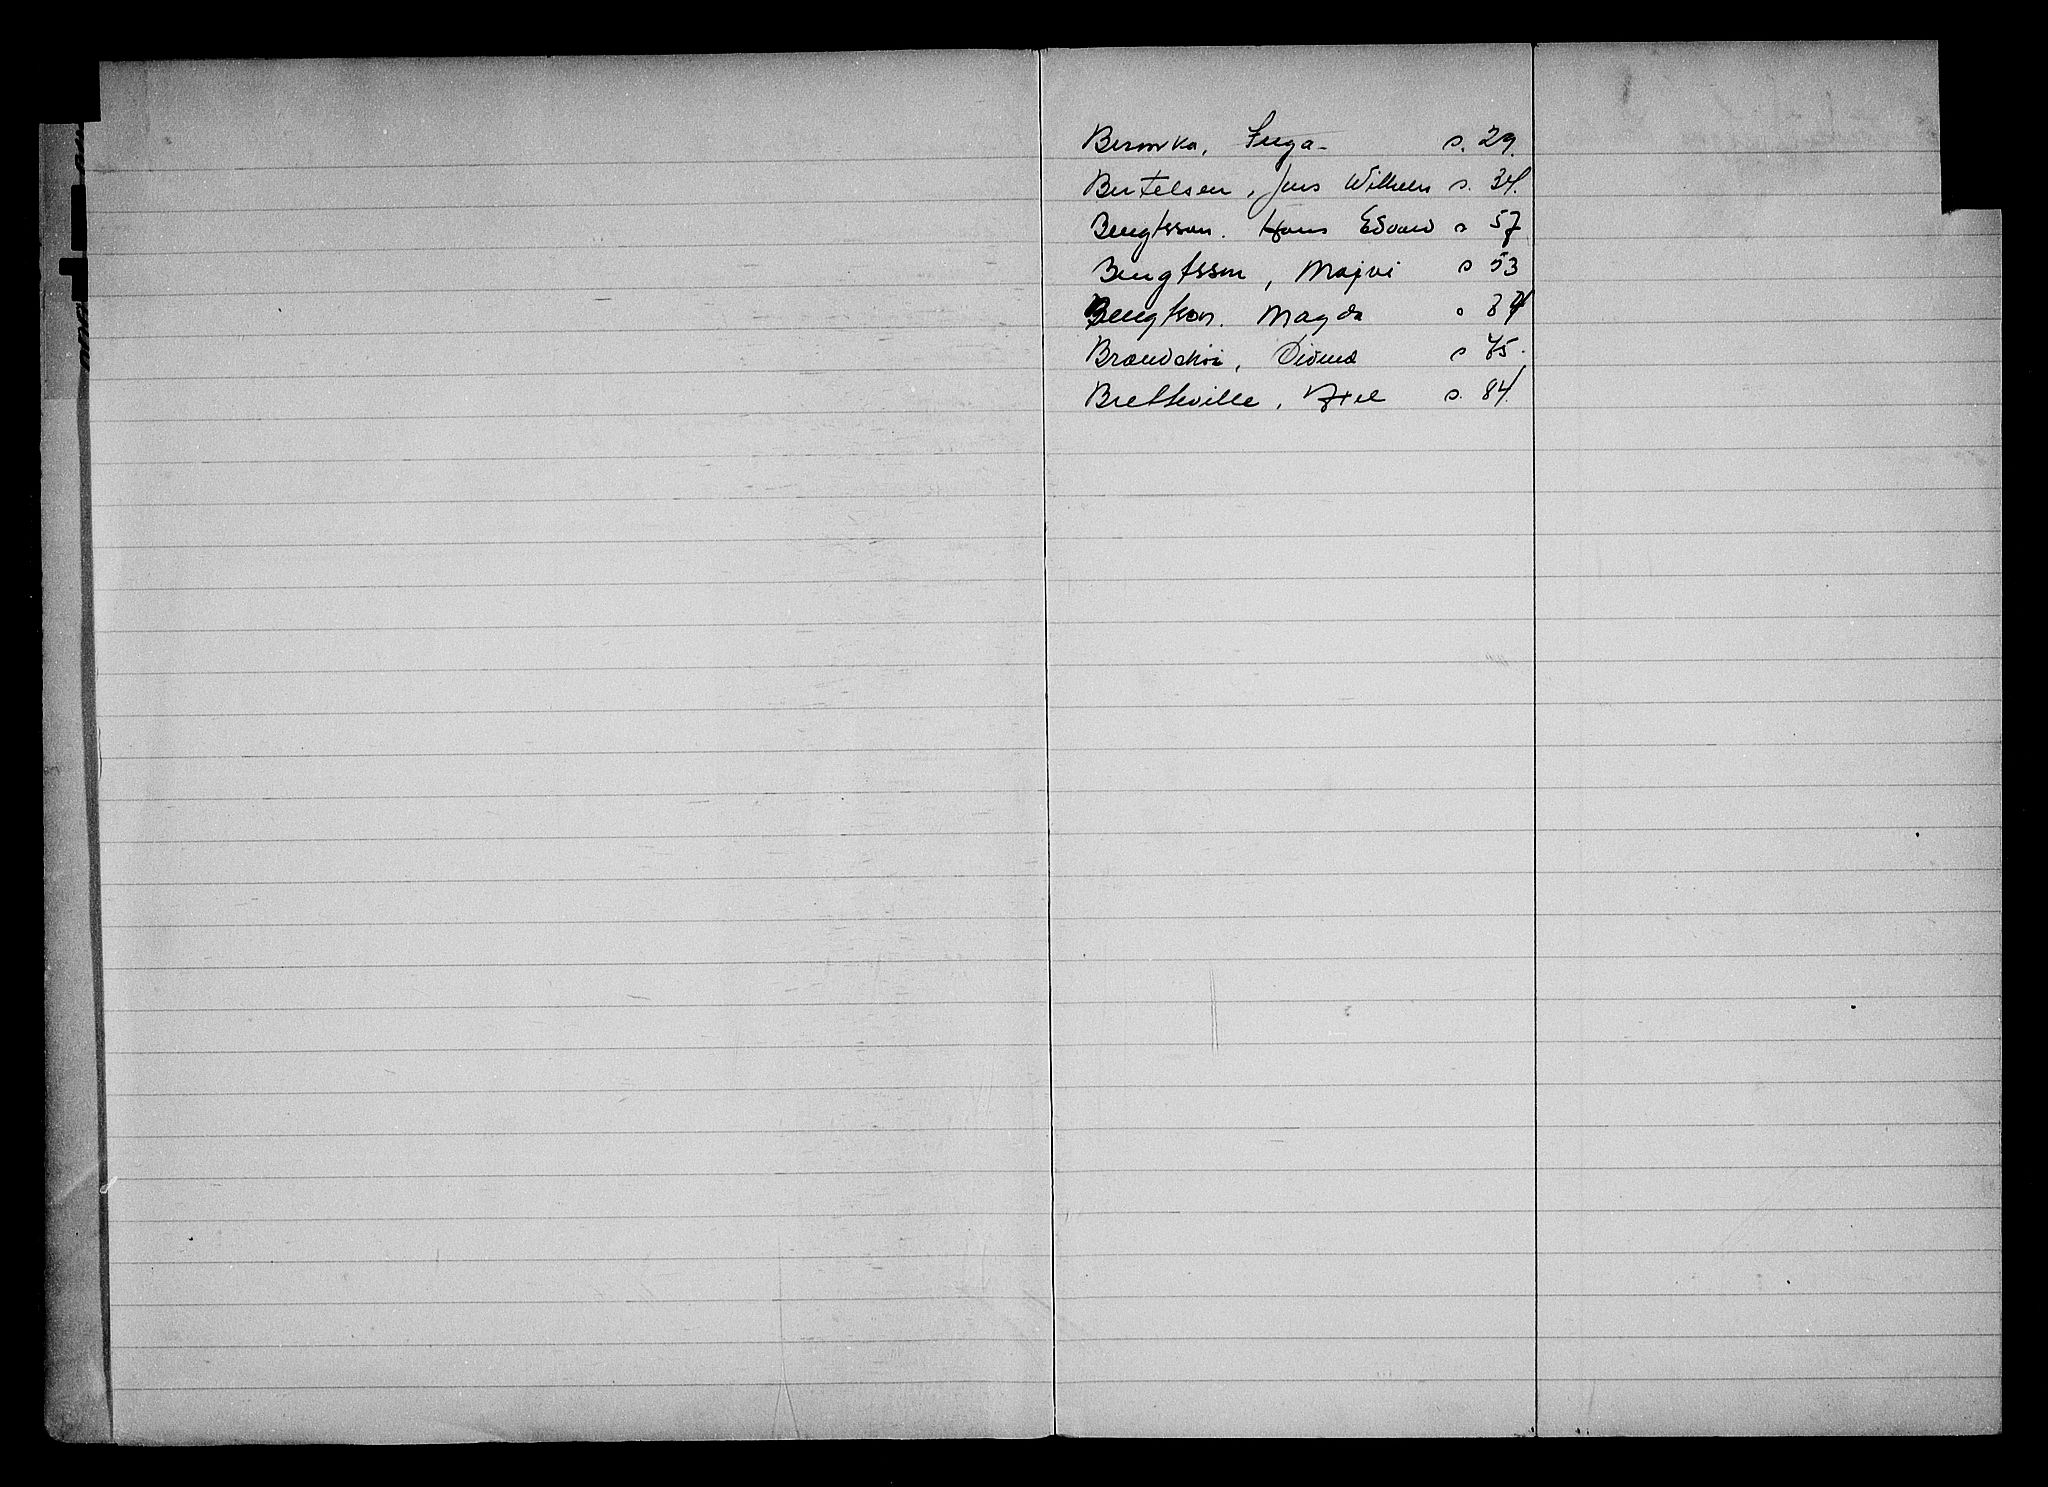 Beronka, Inga s. 29.
Bertelsen, Jens Wilhelm s. 34.
Bengtsson. Hans Edvard s 57
Bengtsson, Majvi s 53
Bengtson. Magda s
Vidund s 75.
Bretteville, Axel s. 84.